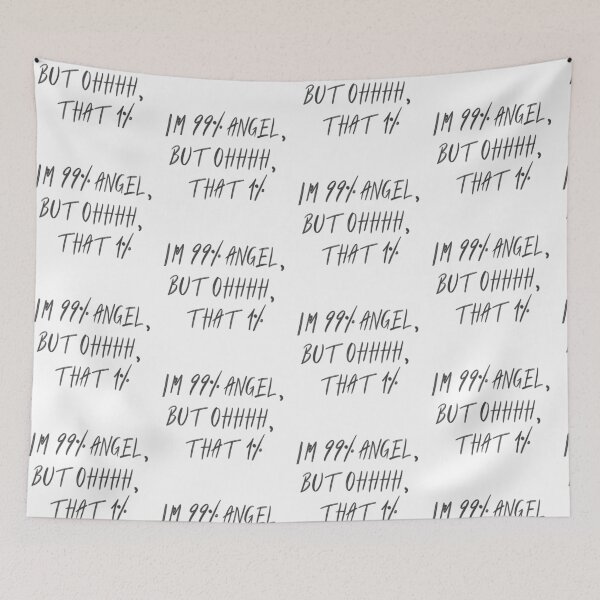 BUT OHHHH,
THAT 1%
IM 99% ANGEL,
BUT OHHHH,
THAT 1%
IM 99% ANGEL,
BUT OHHHH,
THAT 1%
IM 99% ANGEL,
BUT OHHHH,
THAT 1%
IM 99% ANGEL,
BUT OHHHH,
THAT 1%
IM 99% ANGEL,
BUT OHHHH,
THAT 1%
IM 99% ANGEL,
BUT OHHHH,
THAT 1%
IM 99% ANGEL
BUT OHHHH,
THAT 1%
IM 99% ANGEL,
BUT OHHHH,
THAT 1%
IM 99% ANGEL,
BUT OHHHH,
THAT 1%
IM 99% ANGEL,
BUT OHHHH,
THAT 1%
IM 99% ANGEL,
BUT OHHHH,
THAT 1%
IM 99% ANGEL,
BUT OHHHH,
THAT 1%
IM 99% ANGEL,
BUT OHHHH,
THAT 1%
IM 99% ANGEL